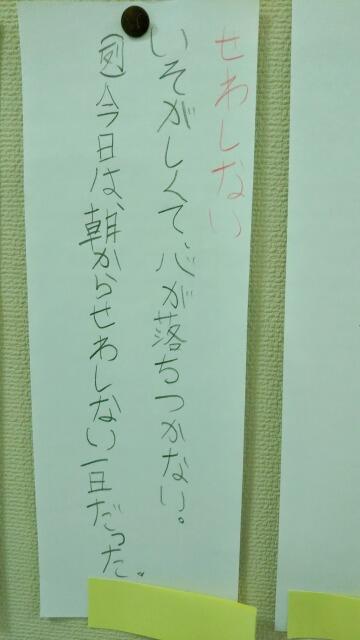 せわしない
いそがしくて、心が落ちつかない。
(例)今日は、朝からせわしない一日だった。